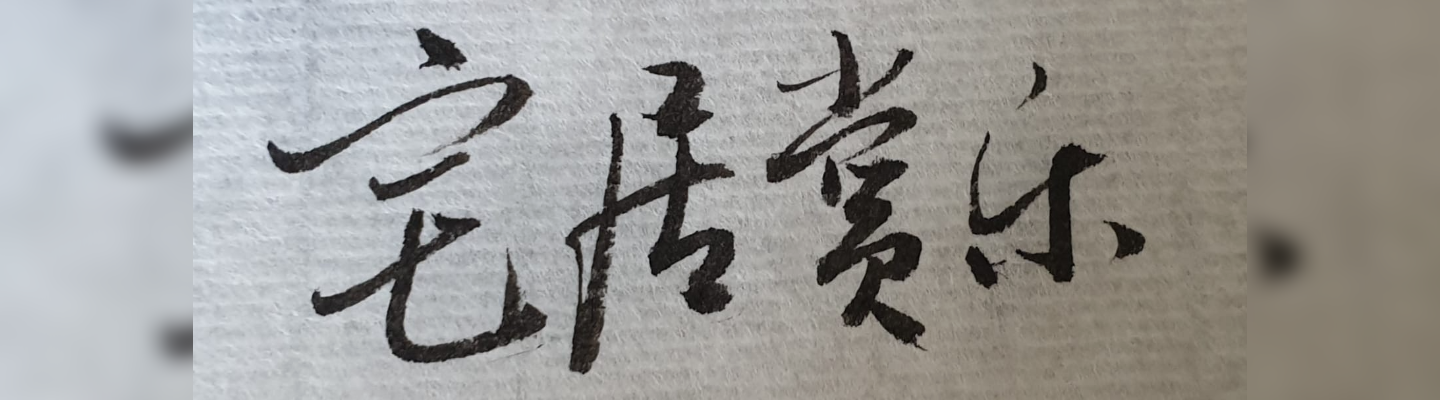 宅居赏乐